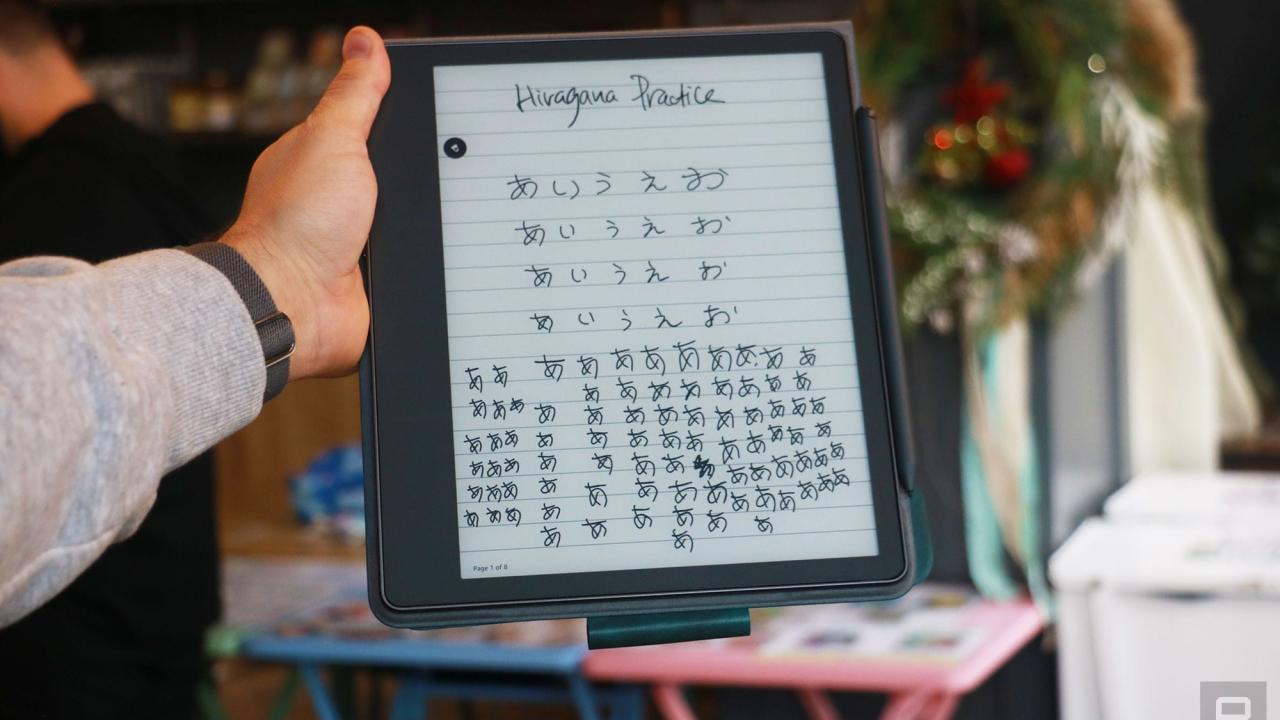 Hiragana Practice
あ い う え お
あ い う え お
あ い う え お
あ い う え お
ああ あ あ あ あ あ あ あ あ あ
あ あ あ あ あ あ あ あ
あああ あ あ あ あ あ あ あ あ あ あ
あああ あ あ あ あ あ あ あ あ あ あ
あああ あ あ あ あ あ あ あ あ あ あ
あああ あ あ あ あ あ あ あ あ あ あ あ
あああ あ あ あ あ あ
あ あ あ
Page 1 of 8